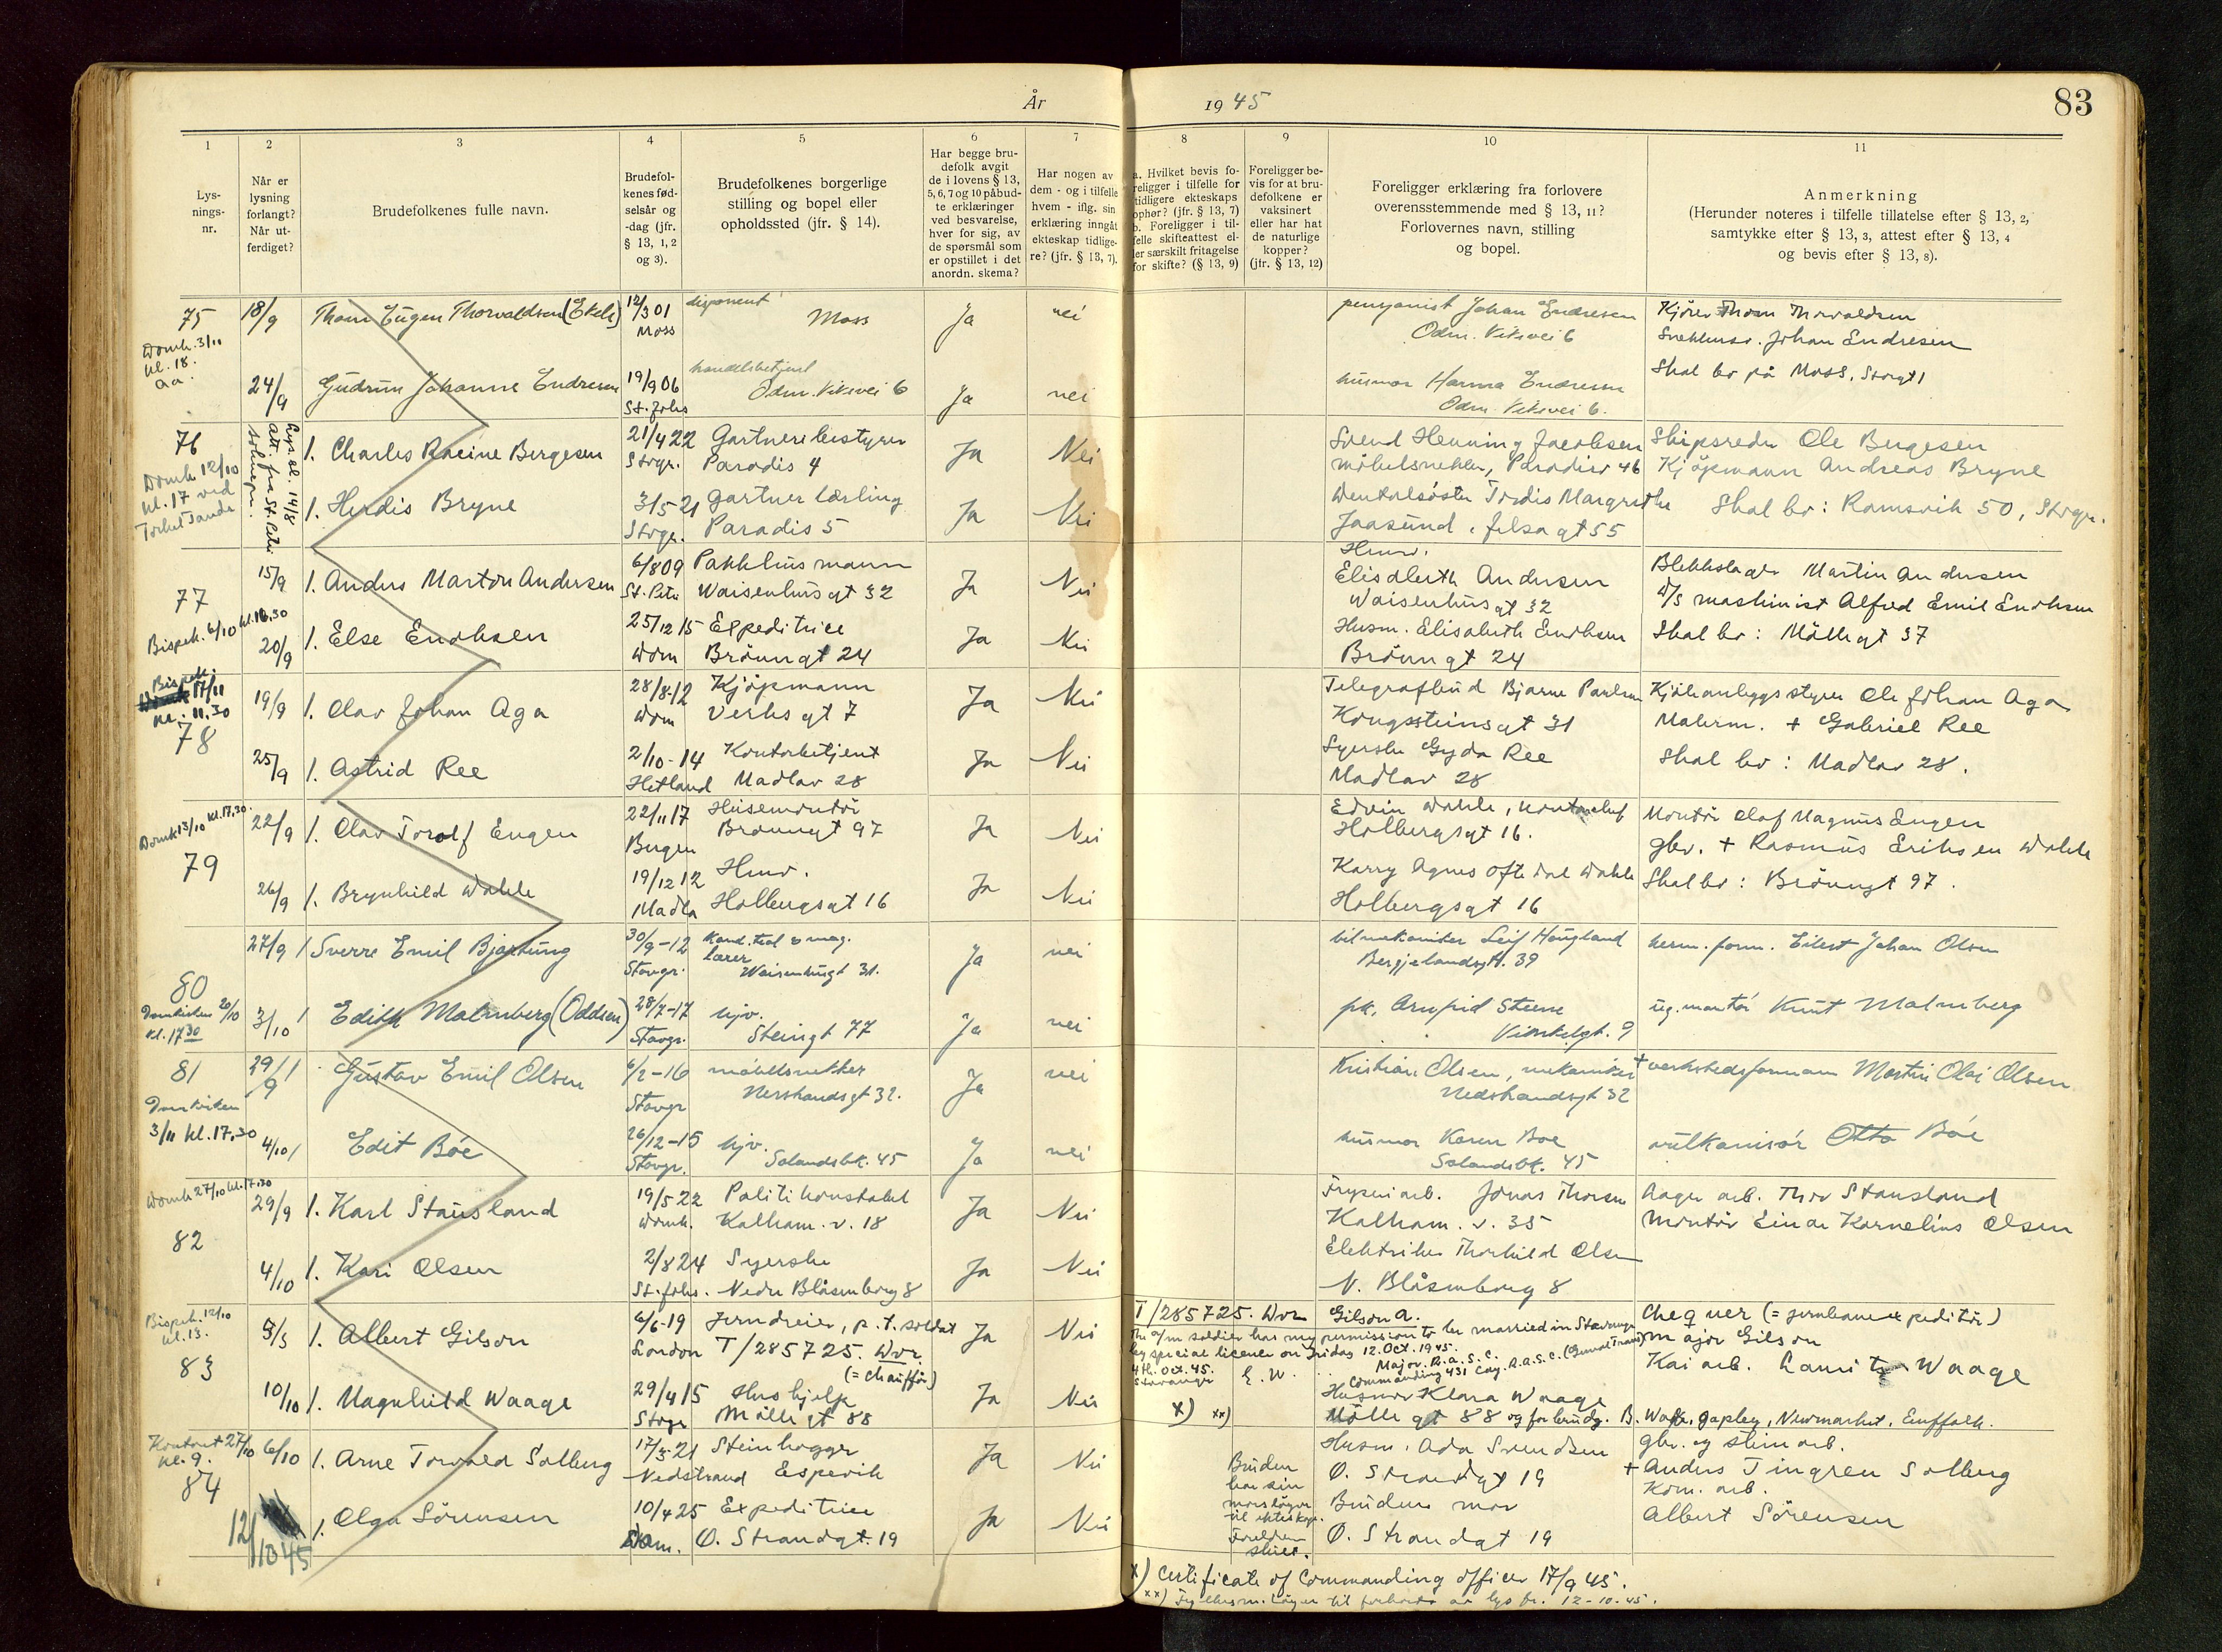 År 1945
83
1
2
3
4
5
6
7
8
9
10
11
Lys-
nings-
nr.
Når er
lysning
forlangt?
Når ut-
ferdiget?
Brudefolkenes fulle navn.
Brudefol-
kenes fød-
selsår og
-dag (jfr.
§ 13, 1, 2
og 3).
Brudefolkenes borgerlige
stilling og bopel eller
opholdssted (jfr. § 14).
Har begge bru-
defolk avgit
de i lovens § 13,
5, 6, 7 og 10 påbud-
te erklæringer
ved besvarelse,
hver for sig, av
de spørsmål som
er opstillet i det
anordn. skema?
Har nogen av
dem - og i tilfelle
hvem - iflg. sin
erklæring inngåt
ekteskap tidlige-
re? (jfr. § 13, 7).
a. Hvilket bevis fo-
religger i tilfelle for
tidligere ekteskaps
ophør? (jfr. § 13, 7)
b. Foreligger i til-
felle skifteattest el-
ler særskilt fritagelse
for skifte? (§ 13, 9)
Foreligger be-
vis for at bru-
defolkene er
vaksinert
eller har hat
de naturlige
kopper?
(jfr. § 13, 12)
Foreligger erklæring fra forlovere
overensstemmende med § 13, 11?
Forlovernes navn, stilling
og bopel.
Anmerkning
(Herunder noteres i tilfelle tillatelse efter § 13, 2,
samtykke efter § 13, 3, attest efter § 13, 4
og bevis efter § 13, 8).
75
Domk. 3/11
kl. 18.
18/9 Thom Eugen Thorvaldsen (Ekeli) 12/3 01 Moss disponent Moss Ja nei
pensjonist Johan Endresen
Odm. Viksvei 6
Kjörer Thom Thorvaldsen
Snekkerm. Johan Endresen
24/9 Gudrun Johanne Endresen 19/9 06 St. Johs handelsbetjent Odm. Viksvei 6 Ja nei
husmor Hanna Endresen
Odm. Viksvei 6.
Skal bo på Moss, Storgt 1
76
Domk 12/10
kl. 17 ved
Torkel Tande
Lys. al. 14/8
att. fra St. Petri
soknepr.
1. Charles Racine Bergesen 21/4 22 Stvgr. Gartnerbestyrer Paradis 4 Ja Nei
Svend Henning Jacobsen
Möbelsnekker, Paradisv 46
Skipsreder Ole Bergesen
Kjöpmann Andreas Bryne
1. Herdis Bryne 3/5-21 Stvgr. Gartnerlærling Paradis 5 Ja Nei
Tordis Margrethe
Jaasund
Skal bo: Ramsvik 50, Stvgr.
77
Bispek. 6/10 kl. 16.30
15/9 1. Anders Marton Andersen 6/8 09 St. Petri Pakkhusmann Waisenhusgt 32 Ja Nei
Husm.
Elisabeth Andersen
Waisenhusgt 32
Blikkslager Martin Andersen
D/S maskinist Alfred Emil Enoksen
20/9 1. Else Enoksen 25/12 15 Dom Expeditrice Brönngt 24 Ja Nei
Husm. Elisabeth Enoksen
Brönngt 24
Skal bo: Möllegt 37
Bispek.
17/11
kl. 11.30
78
19/9 1. Olav Johan Aga 28/8-12 Dom Kjöpmann Verksgt 7 Ja Nei
Telegrafbud Bjarne Paulsen
Kongsteinsgt 31
Kjöleanleggsstyrer Ole Johan Aga
Malerm. + Gabriel Ree
25/9 1. Astrid Ree 2/10-14 Hetland Kontorbetjent Madlav 28 Ja Nei
Syerske Gyda Ree
Madlav 28
Skal bo: Madlav 28.
Domk 13/10 kl. 17.30
79
22/9 1. Olav Torolf Eugen 22/11 17 Bergen Husmontör Brönngt 97 Ja Nei
Edvin Wahle, kontorchef
Holbergsgt 16.
Montör Olaf Magnus Eugen
gbr. + Rasmus Eriksen Wahle
26/9 1. Brynhild Wahle 19/12 12 Madla Husv. Holbergsgt 16 Ja Nei
Karry Agnes Oftedal Wahle
Holbergsgt 16
Skal bo: Brönngt 97.
80
Domkirken 20/10
kl. 17.30
27/9 1 Sverre Emil Bjartung 30/9-12 Stavgr. Kand. real & mag. lærer Waisenhusgt 31. Ja nei
bilmekaniker Leif Haugland
Bergjelandsgt. 39
herm. form. Eilert Johan Olsen
3/10 1 Edith Malmberg (Oddsen) 28/7-17 Stavgr. hjv. Steingt 77 Ja nei
Steene
Vinkelgt. 9
montör Knut Malmberg
81
Domkirken
3/11 kl. 17.30
29/9 1 Gustav Emil Olsen 6/2-16 Stavgr möbelsnekker Nerstrandsgt 32. Ja nei
Kristian Olsen, mekaniker
Nedstrandsgt 32
+ verkstedsformann Martin Olai Olsen
4/10 1 Edit Böe 26/12-15 Stavgr. hjv. Solandsbk. 45 Ja nei
husmor Karen Boe
Solandsbk. 45
vulkanisör Otto Böe
Domk 27/10 kl. 17.30
82
29/9 1. Karl Stausland 19/5 22 Domk. Politikonstabel Kalham. v. 18 Ja Nei
Fryseriarb. Jonas Thorsen
Kalham. v. 35
Lager arb. Thor Stausland
Montör Einar Kornelius Olsen
4/10 1. Kari Olsen 2/8 24 St. Johs. Syerske Nedre Blåsenborg 8 Ja Nei
Elektriker Thorkild Olsen
N. Blåsenborg 8
Bispek. 12/10
kl. 13.
83
5/5 1. Albert Gilson 6/6-19 London Jerndreier, p. t. soldat T/285725. Dvr. (= chauffør) Ja Nei
T/285725. Dvr Gilson A.
The a/m soldier has my permission to be married in Stavanger
by special licence on Friday 12. Oct. 1945.
4th. Oct. 45. Major. R.A.S.C.
Stavanger Commanding 431 Coy. R.A.S.C. (General Trans)
Chequer (= jernbaneexpeditör)
major Gilson
10/10 1. Magnhild Waage 29/4 15 Stvgr Hushjelp Möllegt 88 Ja Nei
x) xx)
Husmor Klara Waage
Möllegt 88 og for brudg. B. Wake, Gapley, Newmarket, Suffolk.
Kaiarb. Lauritz Waage
Kontoret 27/10
kl. 9.
84
6/10 1. Arne Torvald Solberg 17/3-21 Nedstrand Steinhogger Espevik Ja Nei
Husm. Ada Svendsen
Ö. Strandgt 19
gbr. og steinarb.
+ Anders Tingren Solberg
12/10 45 1. Olga Sörensen 10/4 25 Dom. Expeditrice Ö. Strandgt. 19 Ja Nei
Bruden
har sin
mors löyve
til ekteskap.
Foreldrene
skilt.
Brudens mor
Ö. Strandgt 19
Kom. arb.
Albert Sörensen
x) Certificate of Commanding officer 17/9 45.
12-10-45.